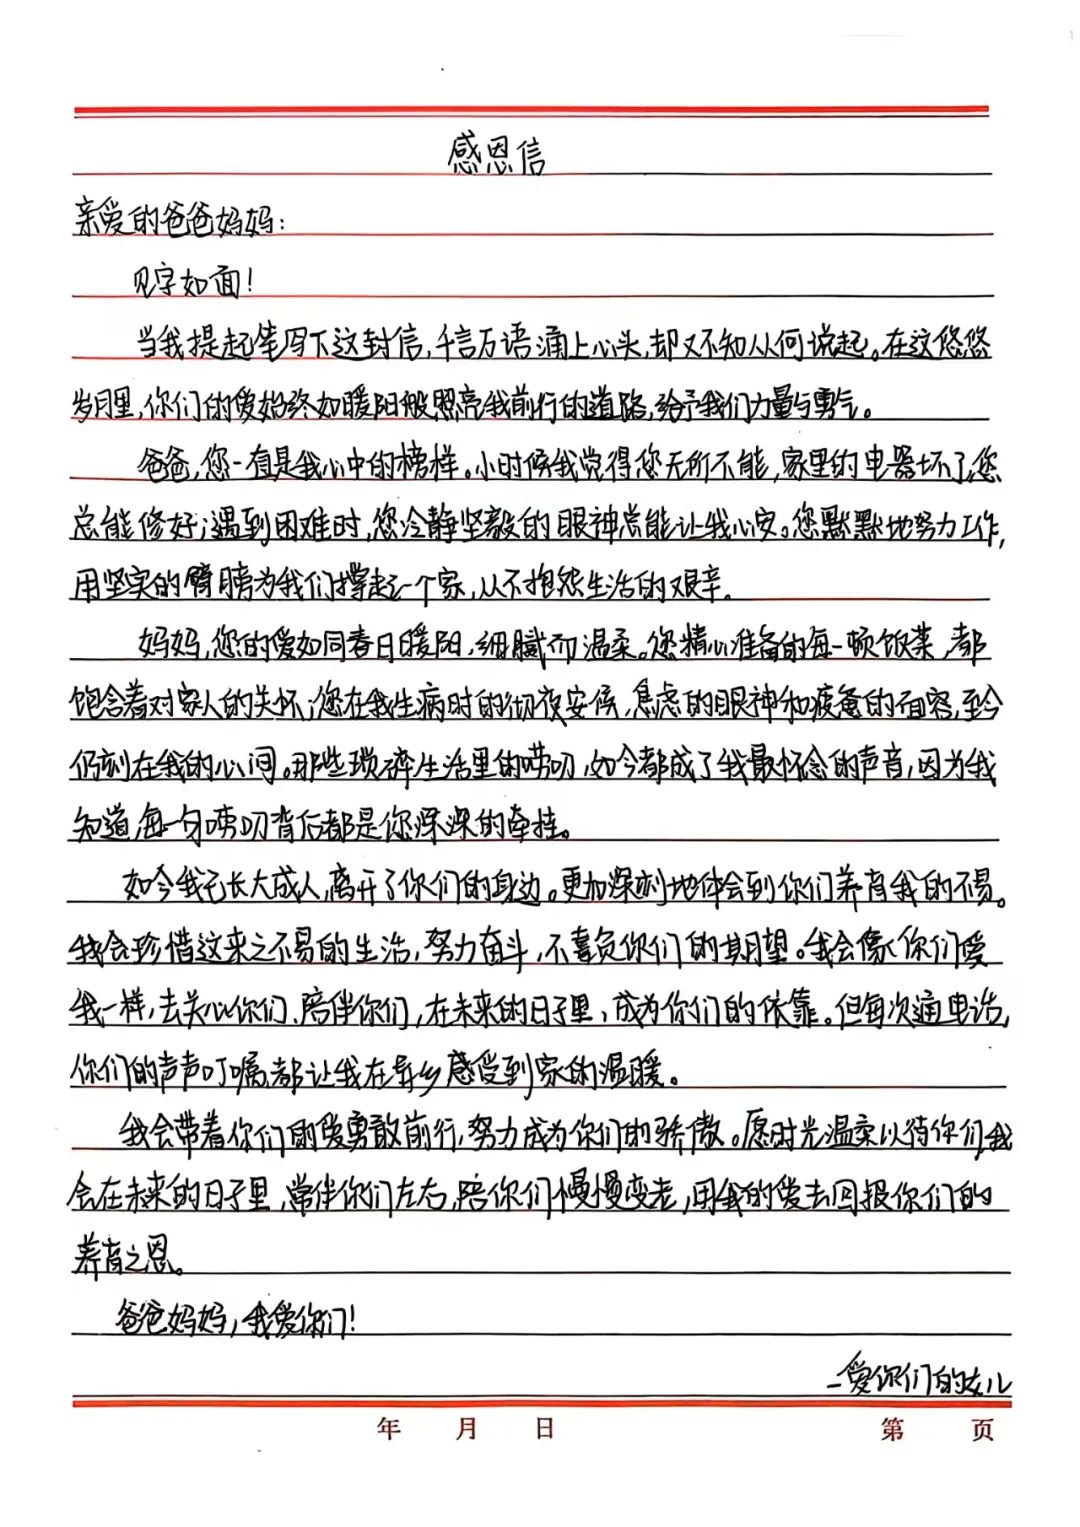 感恩信
亲爱的爸爸妈妈：
见字如面！
当我提起笔写下这封信，千言万语涌上心头，却又不知从何说起。在这悠悠
岁月里，你们的爱始终如暖阳般照亮我前行的道路，给予我们力量与勇气。
爸爸，您一直是我心中的榜样。小时候我觉得您无所不能，家里的电器坏了，您
总能修好；遇到困难时，您冷静坚毅的眼神总能让我心安。您默默地努力工作，
用坚实的臂膀为我们撑起一个家，从不抱怨生活的艰辛。
妈妈，您的爱如同春日暖阳，细腻而温柔。您精心准备的每一顿饭菜，都
饱含着对家人的关怀；您在我生病时的彻夜安侯，焦虑的眼神和疲惫的面容，至今
仍刻在我的心间。那些琐碎生活里的唠叨，如今都成了我最怀念的声音，因为我
知道，每一句唠叨背后都是您深深的牵挂。
如今我已长大成人，离开了你们的身边。更加深刻地体会到你们养育我的不易。
我会珍惜这来之不易的生活，努力奋斗，不辜负你们的期望。我会像你们爱
我一样，去关心你们、陪伴你们，在未来的日子里，成为你们的依靠。但每次通电话，
你们的声声叮嘱，都让我在异乡感受到家的温暖。
我会带着你们的爱勇敢前行，努力成为你们的骄傲。愿时光温柔以待你们，我
会在未来的日子里，常伴你们左右，陪你们慢慢变老，用我的爱去回报你们的
养育之恩。
爸爸妈妈，我爱你们！
—爱你们的女儿
年 月 日 第 页